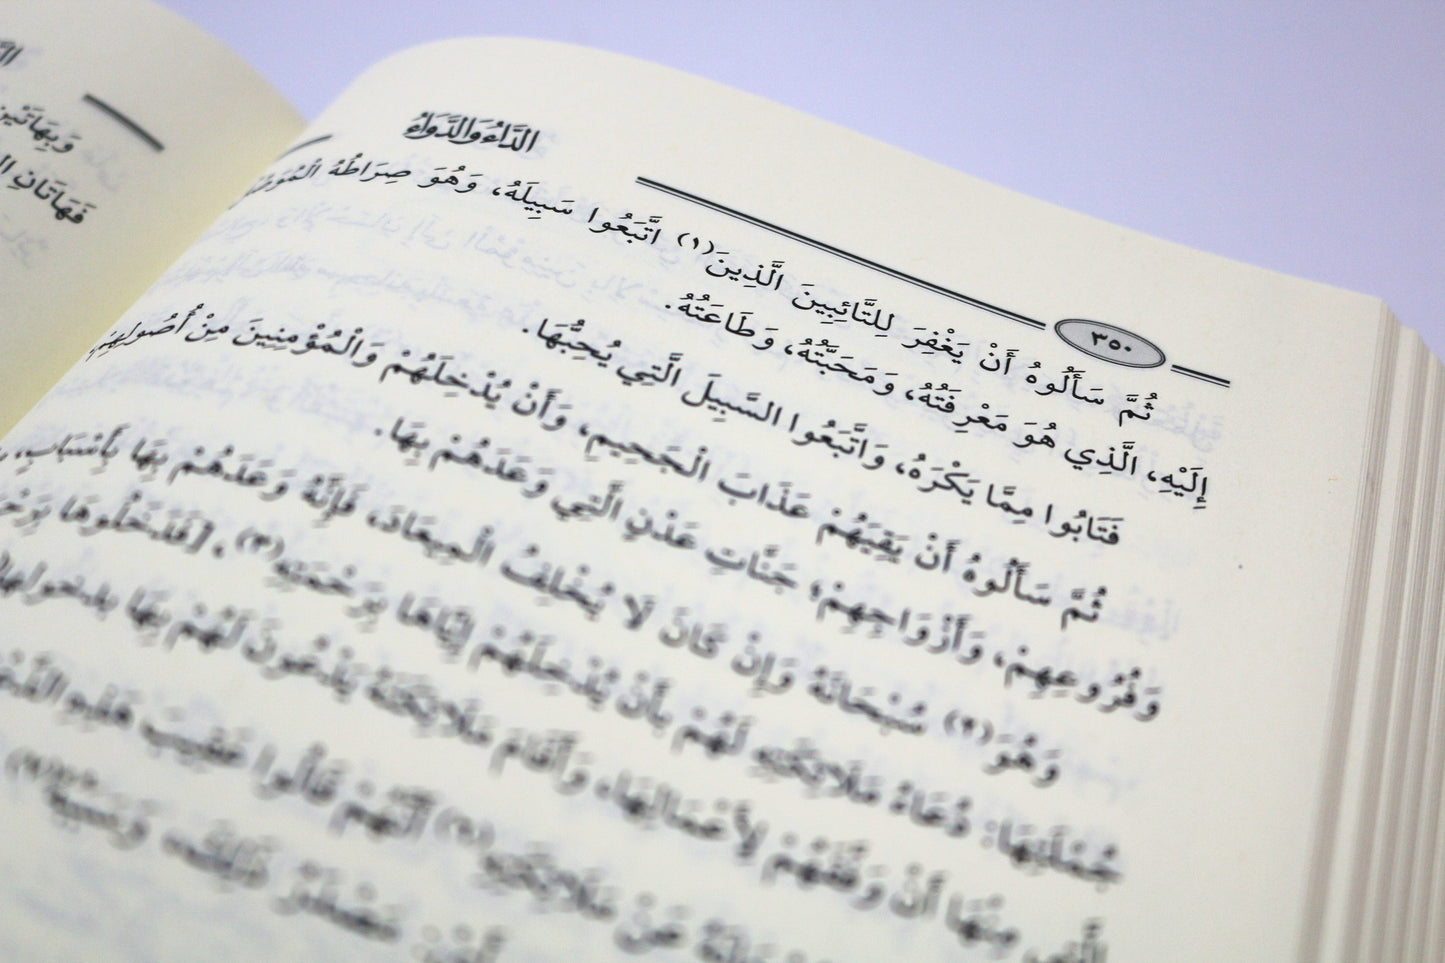 الدَّاءُ وَالدَّوَاءُ
٣٥٠
ثُمَّ سَأَلُوهُ أَنْ يَغْفِرَ لِلتَّائِبِينَ الَّذِينَ(١) اتَّبَعُوا سَبِيلَهُ، وَهُوَ صِرَاطُهُ
إِلَيْهِ، الَّذِي هُوَ مَعْرِفَتُهُ، وَمَحَبَّتُهُ، وَطَاعَتُهُ.
فَتَابُوا مِمَّا يَكْرَهُ، وَاتَّبَعُوا السَّبِيلَ الَّتِي يُحِبُّهَا.
ثُمَّ سَأَلُوهُ أَنْ يَقِيَهُمْ عَذَابَ الْجَحِيمِ، وَأَنْ يُدْخِلَهُمْ وَالْمُؤْمِنِينَ مِنْ أُصُولِهِمْ
وَفُرُوعِهِمْ، وَأَزْوَاجِهِمْ؛ جَنَّاتِ عَدْنٍ الَّتِي وَعَدَهُمْ بِهَا.
وَهُوَ(٢) سُبْحَانَهُ وَإِنْ كَانَ لَا يُخْلِفُ الْمِيعَادَ، فَإِنَّهُ وَعَدَهُمْ بِهَا بِأَسْبَابٍ،
جُمْلَتِهَا: دُعَاءُ مَلَائِكَتِهِ لَهُمْ بِأَنْ يُدْخِلَهُمْ إِيَّاهَا بِرَحْمَتِهِ(٣). [فَدَخَلُوهَا
مِنْهَا أَنْ وَفَّقَهُمْ لِأَعْمَالِهَا، وَأَقَامَ مَلَائِكَتَهُ يَدْعُونَ لَهُمْ بِهَا
عَنْ مَلَائِكَتِهِ أَنَّهُمْ قَالُوا عَقِيبَ
وَبِهَاتَيْنِ
فَهَاتَانِ